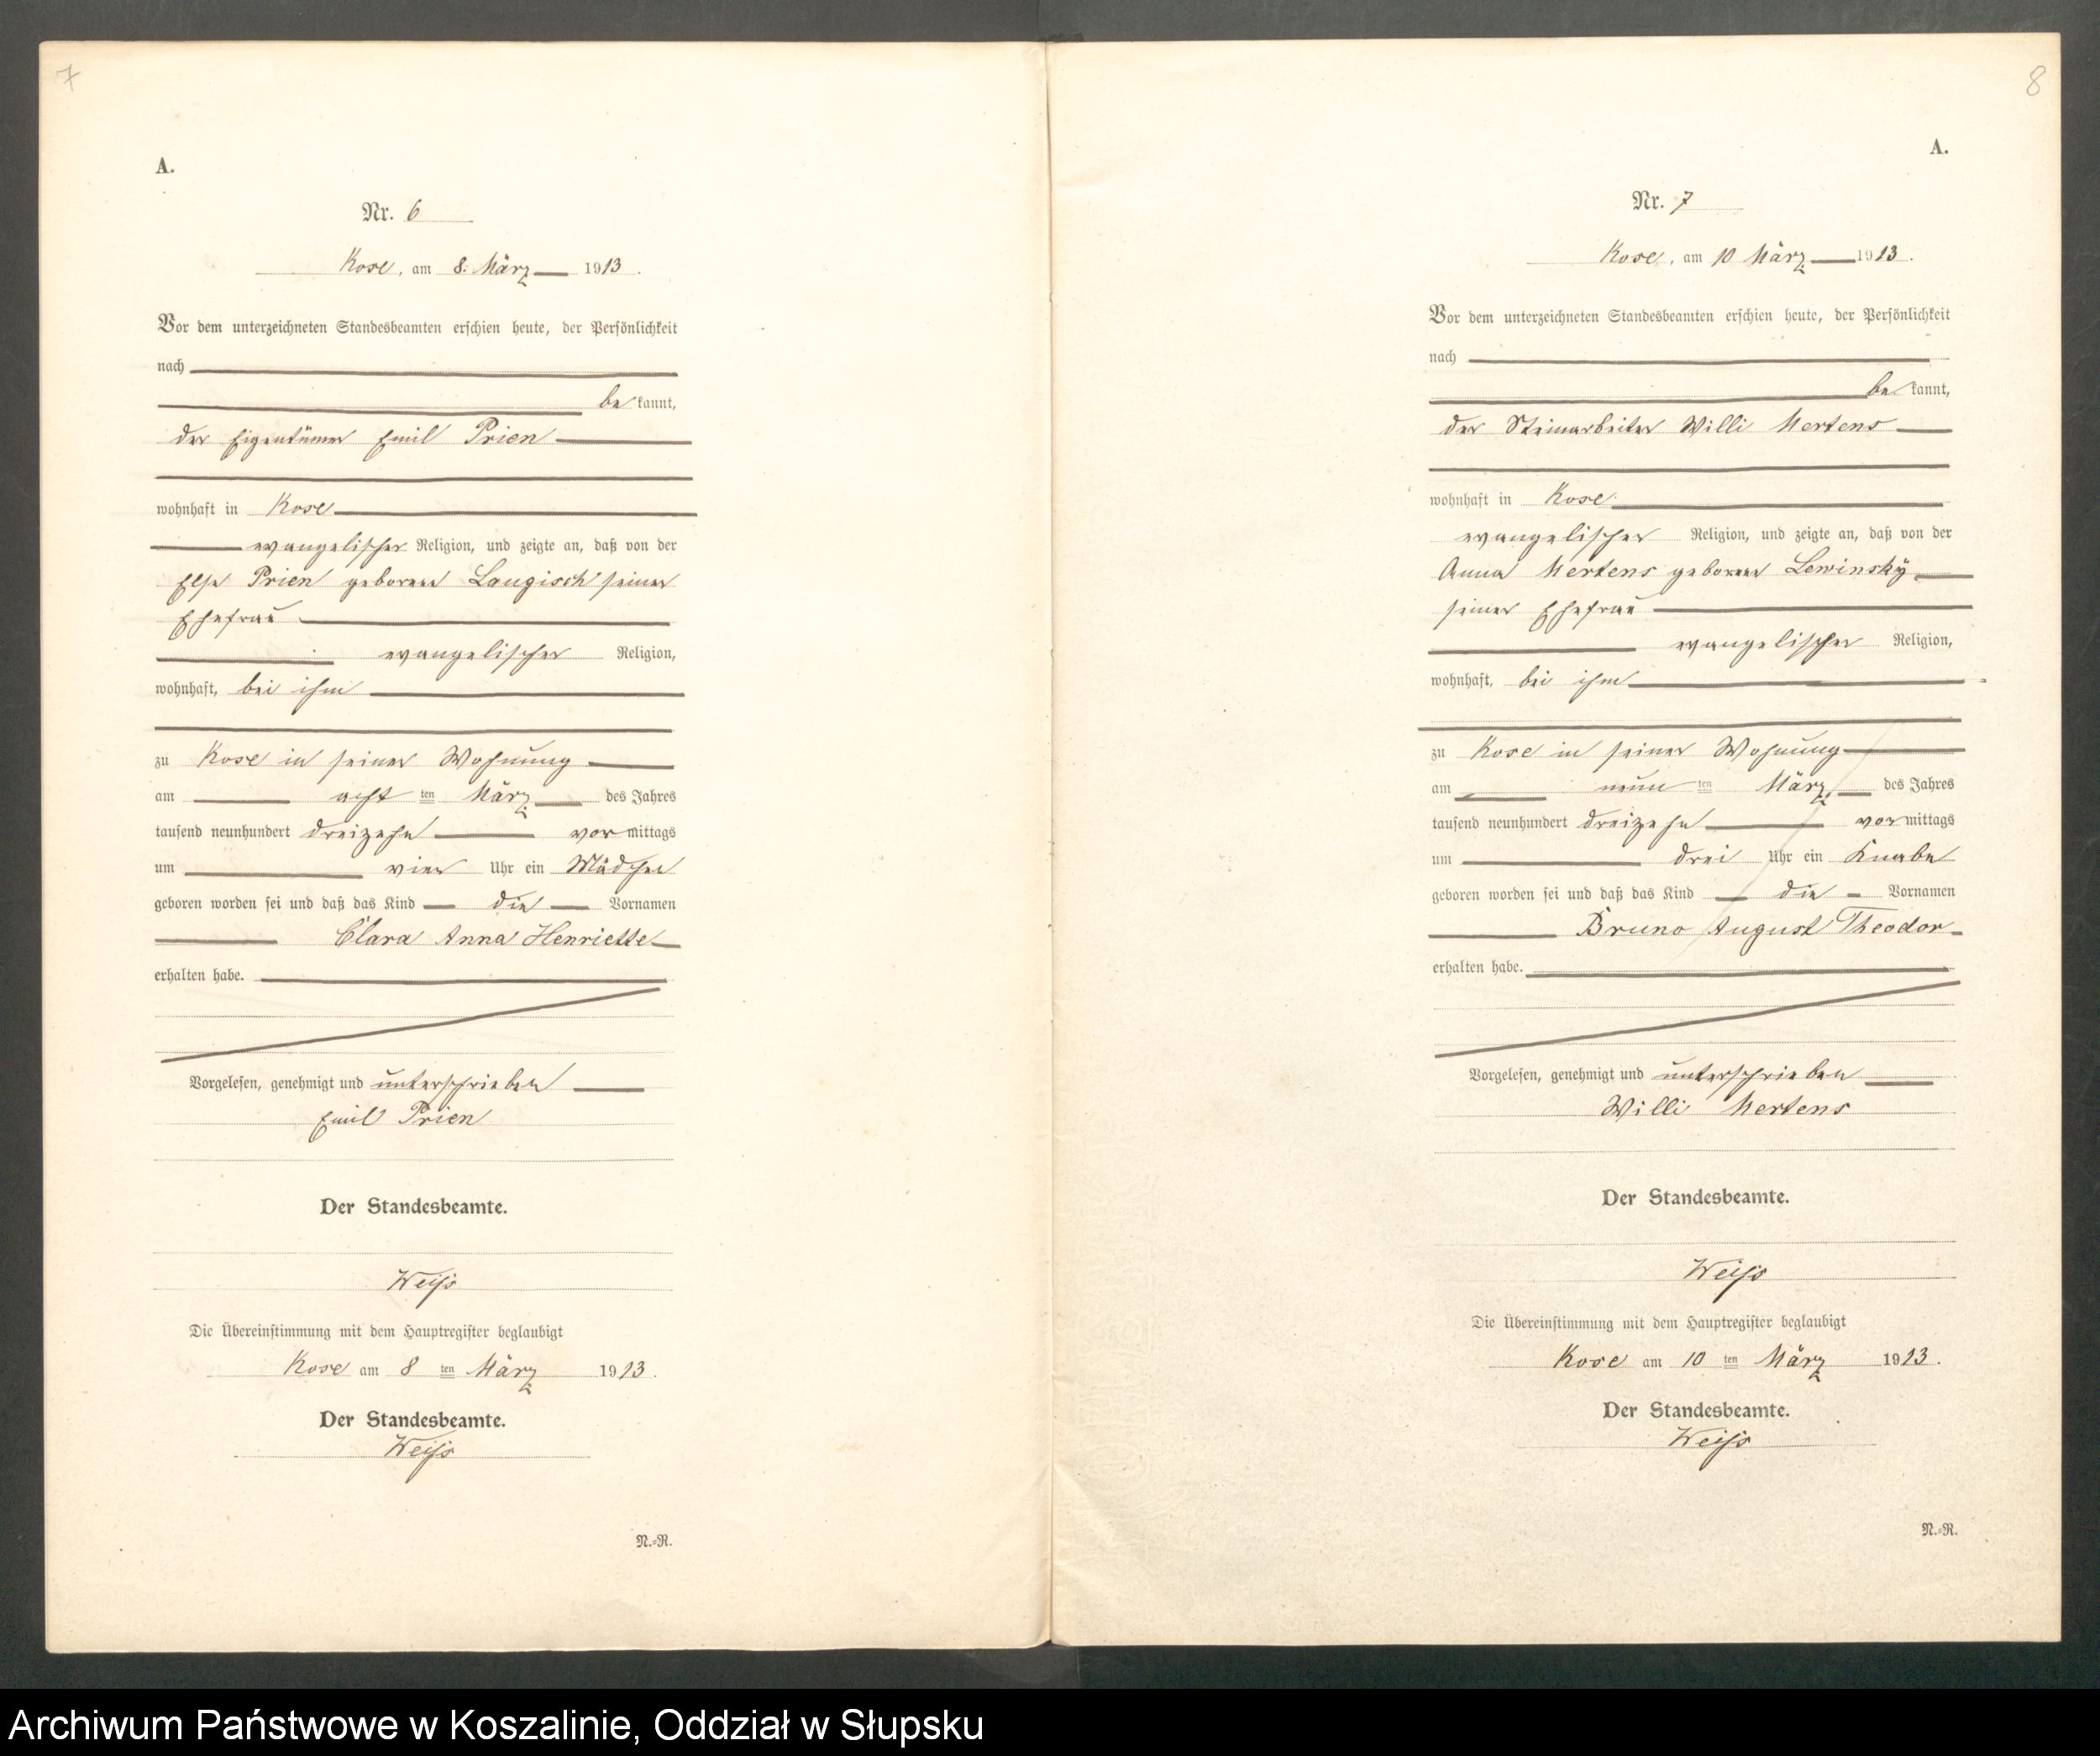 7
A.
Nr. 6
Kose, am 8. März 1913.
Vor dem unterzeichneten Standesbeamten erschien heute, der Persönlichkeit
nach
bekannt,
der Eigentümer Emil Prien
wohnhaft in Kose
evangelischer Religion, und zeigte an, daß von der
Else Prien geborene Langisch seiner
Ehefrau
evangelischer Religion,
wohnhaft, bei ihm
zu Kose in seiner Wohnung
am acht ten März des Jahres
tausend neunhundert dreizehn vormittags
um vier Uhr ein Mädchen
geboren worden sei und daß das Kind die Vornamen
Clara Anna Henriette
erhalten habe.
Vorgelesen, genehmigt und unterschrieben
Emil Prien
Der Standesbeamte.
Weiß
Die Übereinstimmung mit dem Hauptregister beglaubigt
Kose am 8 ten März 1913.
Der Standesbeamte.
Weiß
N.=R.
8
A.
Nr. 7
Kose, am 10 März 1913.
Vor dem unterzeichneten Standesbeamten erschien heute, der Persönlichkeit
nach
bekannt,
der Steinarbeiter Willi Mertens
wohnhaft in Kose
evangelischer Religion, und zeigte an, daß von der
Anna Mertens geborene Lewinsky
seiner Ehefrau
evangelischer Religion,
wohnhaft, bei ihm
zu Kose in seiner Wohnung
am neun ten März des Jahres
tausend neunhundert dreizehn vormittags
um drei Uhr ein Knabe
geboren worden sei und daß das Kind die Vornamen
Bruno August Theodor
erhalten habe.
Vorgelesen, genehmigt und unterschrieben
Willi Mertens
Der Standesbeamte.
Weiß
Die Übereinstimmung mit dem Hauptregister beglaubigt
Kose am 10 ten März 1913.
Der Standesbeamte.
Weiß
N.=R.
Archiwum Państwowe w Koszalinie, Oddział w Słupsku